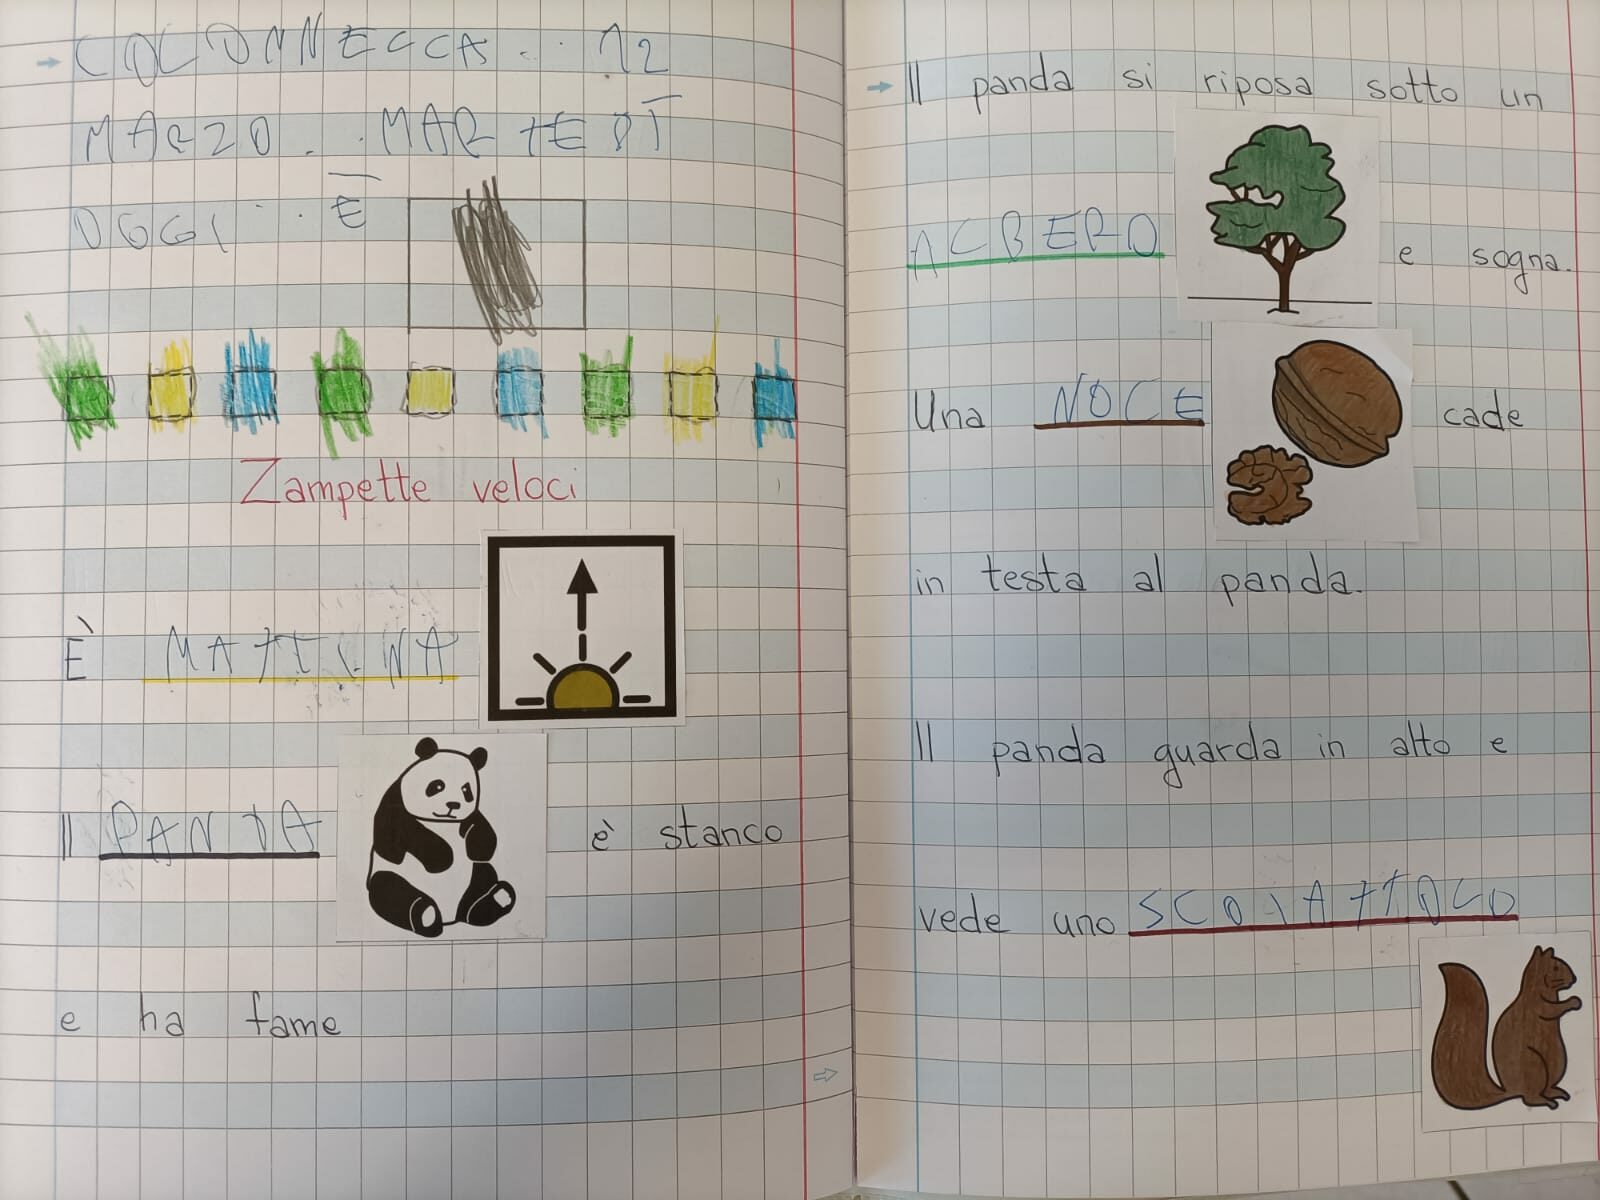 COLONNELLA 12
MARZO MARTEDÌ
OGGI È
Zampette veloci
È MATTINA
Il PANDA è stanco
e ha fame
Il panda si riposa sotto un
ALBERO e sogna.
Una NOCE cade
in testa al panda.
Il panda guarda in alto e
vede uno SCOIATTOLO